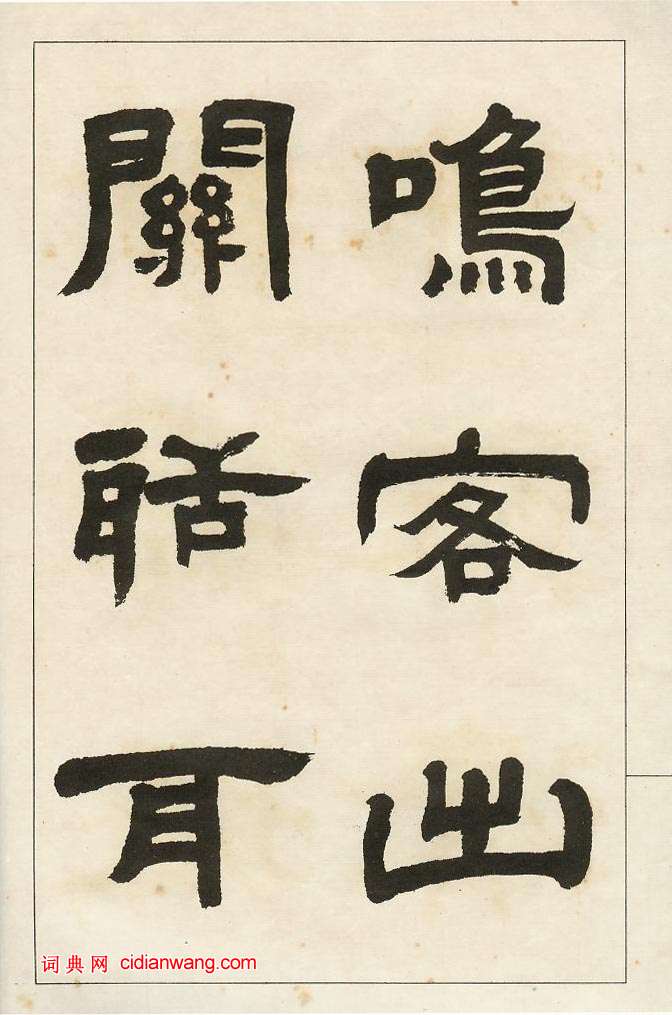 鳴客出
關聒耳
词典网 cidianwang.com